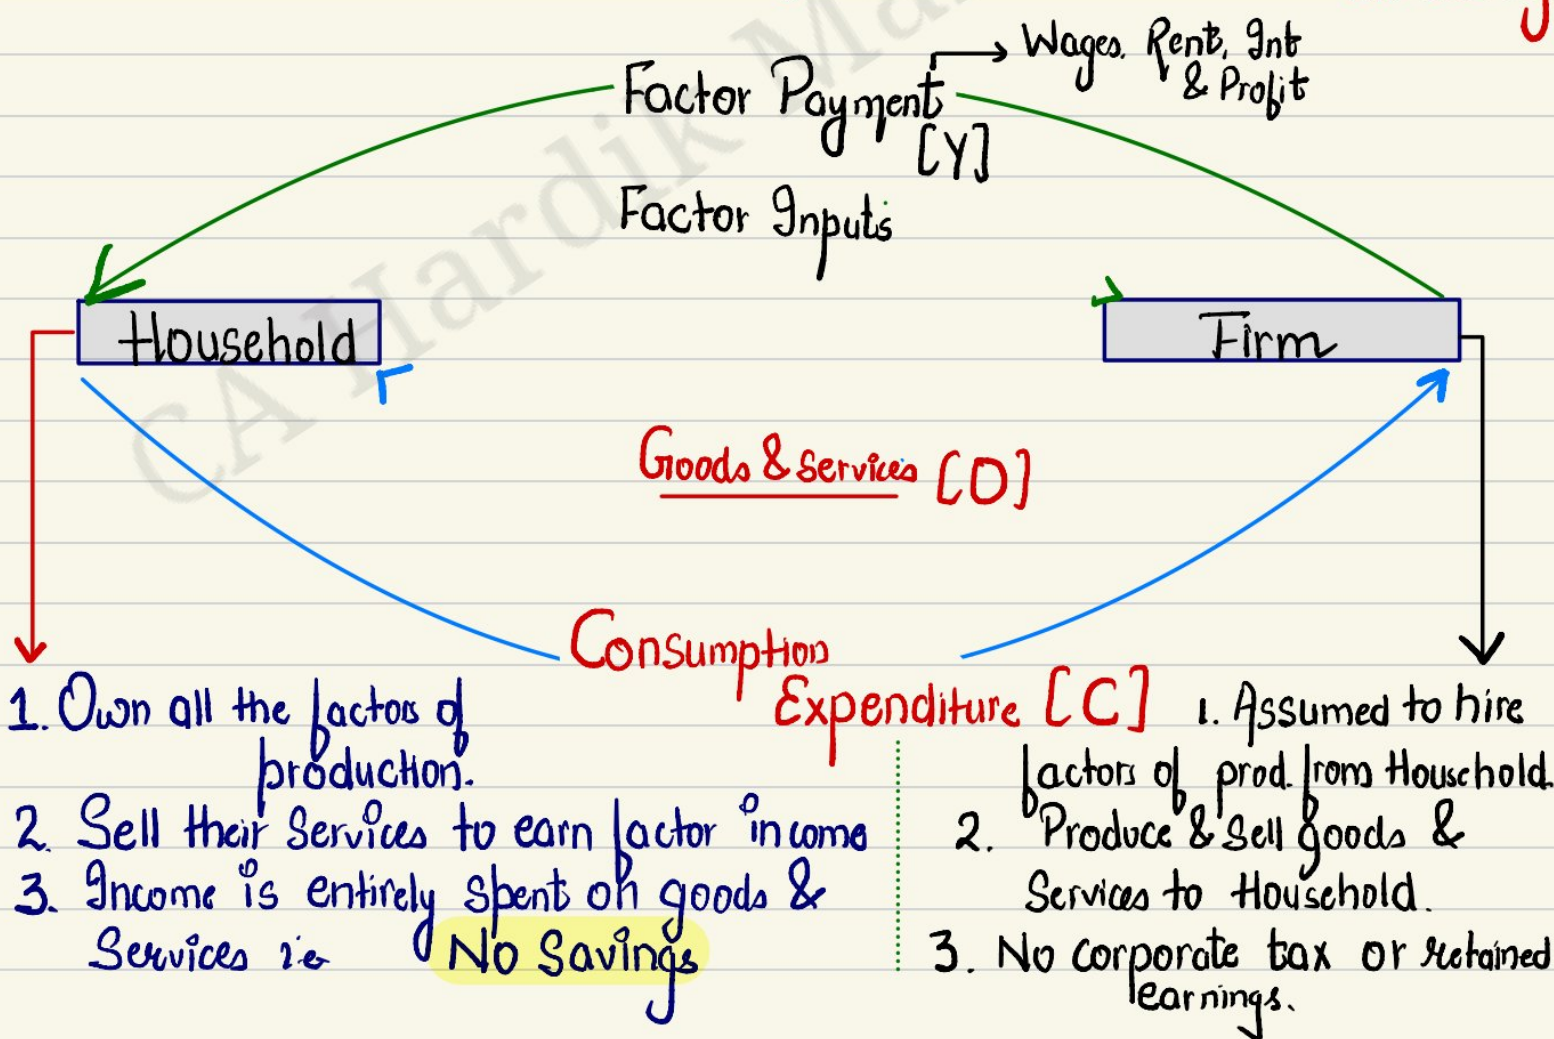 Factor Payment → Wages, Rent, Int
& Profit
[Y]
Factor Inputs
Household
Firm
Goods & Services [O]
Consumption
Expenditure [C]
1. Own all the factors of
production.
2. Sell their Services to earn factor income
3. Income is entirely spent on goods &
Services i.e No Savings
1. Assumed to hire
factors of prod. from Household.
2. Produce & Sell goods &
Services to Household.
3. No corporate tax or retained
earnings.
CA Hardik